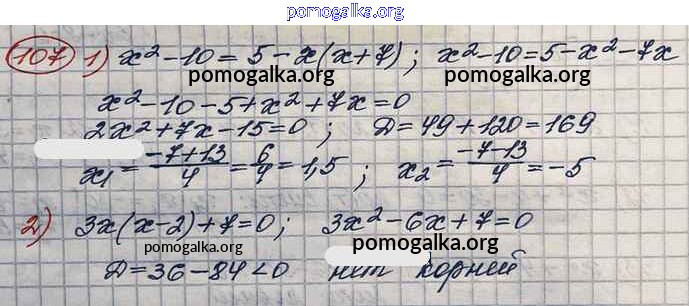 pomogalka.org
107 1) x² - 10 = 5 - x(x + 7) ; x² - 10 = 5 - x² - 7x
pomogalka.org pomogalka.org
x² - 10 - 5 + x² + 7x = 0
2x² + 7x - 15 = 0 ; D = 49 + 120 = 169
x₁ = (-7+13)/4 = 6/4 = 1,5 ; x₂ = (-7-13)/4 = -5
2) 3x(x - 2) + 7 = 0 ; 3x² - 6x + 7 = 0
pomogalka.org pomogalka.org
D = 36 - 84 < 0 нет корней